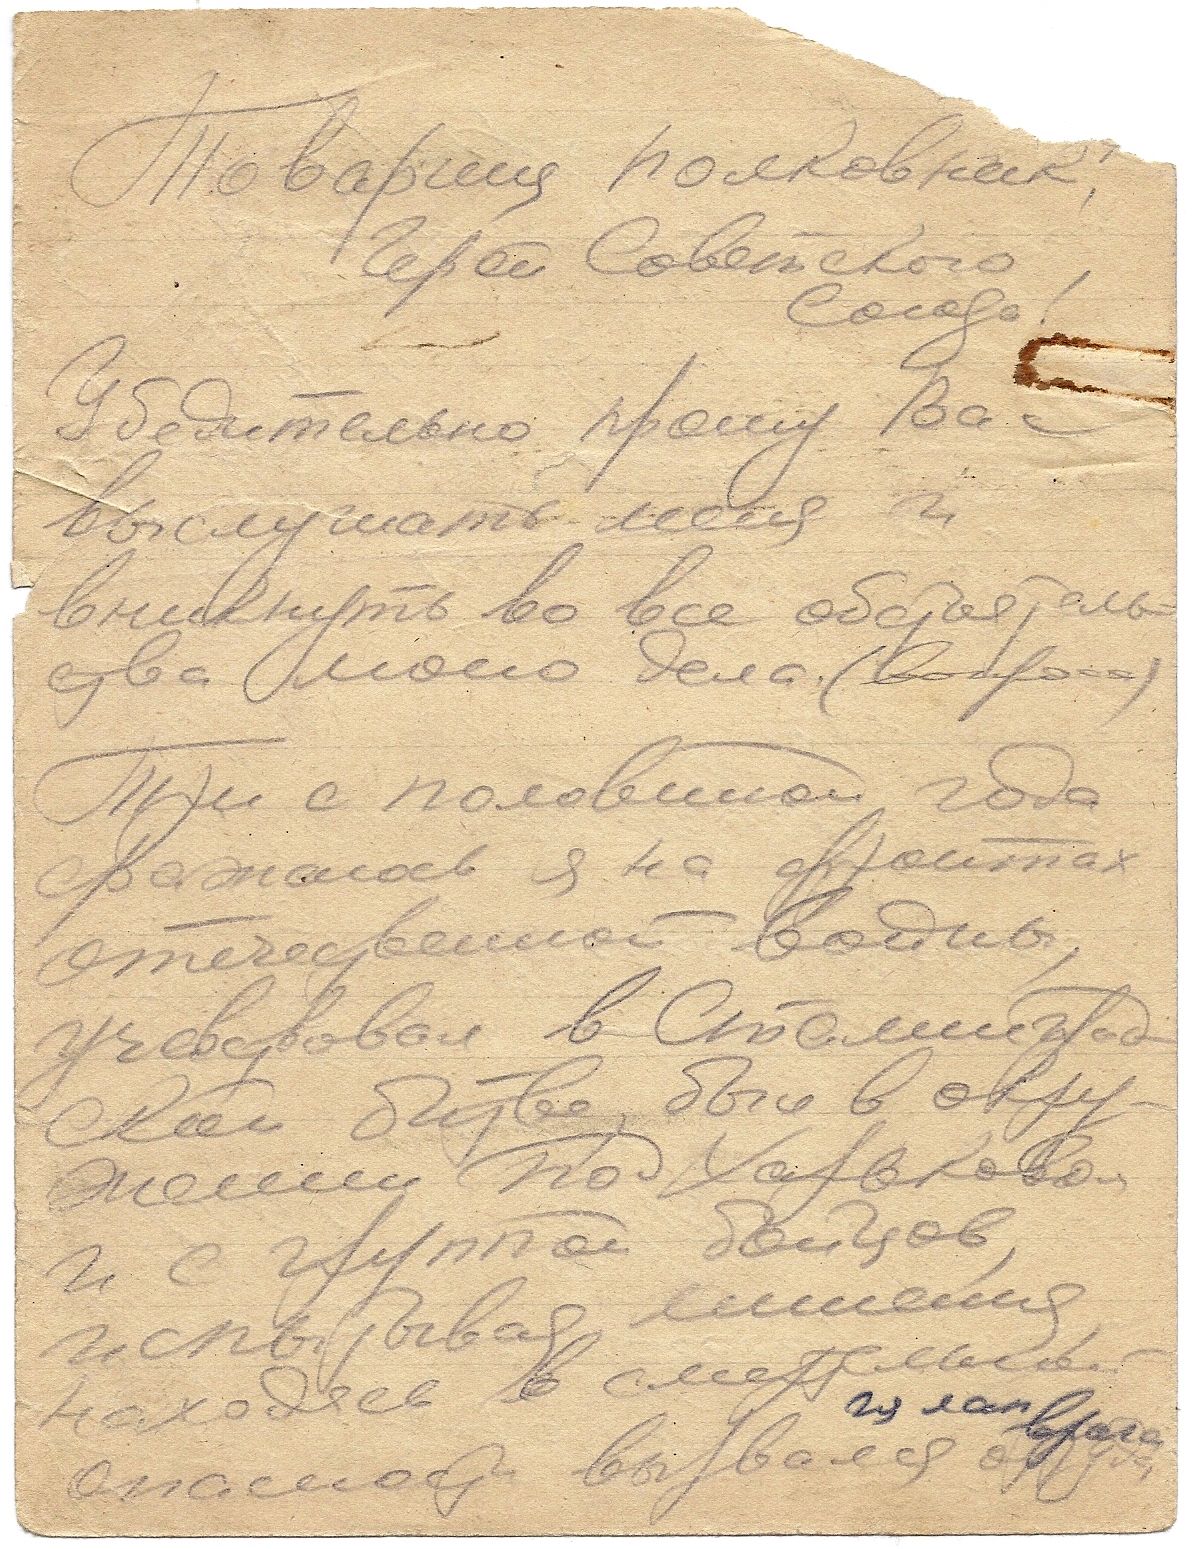 Товарищ полковник,
Герой Советского
Союза!
Убедительно прошу Вас
выслушать меня и
вникнуть во все обстоятель-
ства моего дела. (вопроса)
Три с половиной года
сражался я на фронтах
отечественной войны,
участвовал в Сталинград-
ской битве, был в окру-
жении под Харьковом
и с группой бойцов,
испытывая лишения,
находясь в смертельной
из лап врага
опасности вырвался